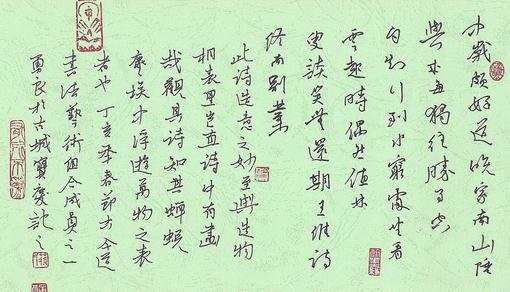 中歲頗好道晚家南山陲
興來每獨往勝事空
自知行到水窮處坐看
雲起時偶然值林
叟談笑無還期王維詩
終南別業
此詩造意之妙至與造物
相表里豈直詩中有畫
哉觀其詩知其蟬蛻
塵埃中浮遊萬物之表
者也丁亥年春節
書法藝術成員之一
勇良於古城寶慶記之